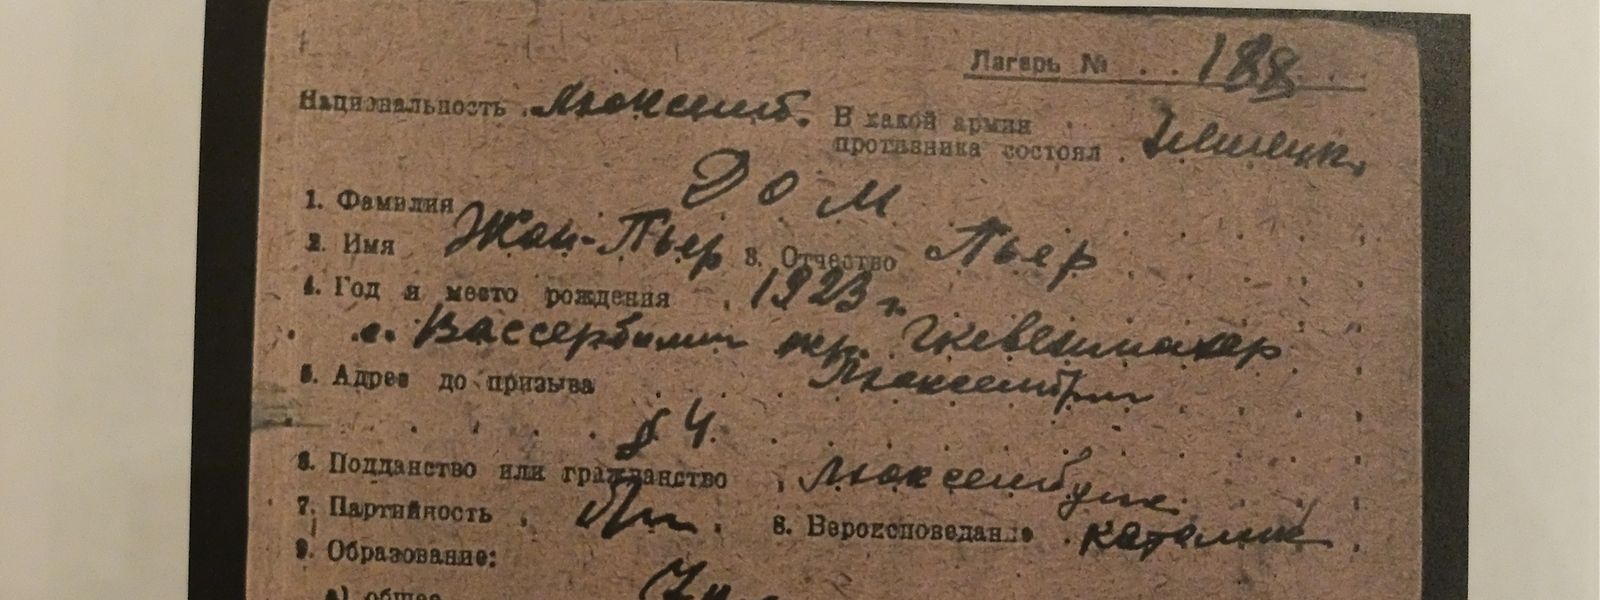 Лагерь № 188
Национальность Люксемб. В какой армии
противника состоял Немецк.
1. Фамилия Дом
2. Имя Жан-Пьер 3. Отчество Пьер
4. Год и место рождения 1923 г.
с. Вассербилиг окр. Гревенмахер
5. Адрес до призыва Люксембург
п 4.
6. Подданство или гражданство Люксембургск.
7. Партийность 8. Вероисповедание католик
9. Образование:
а) общее